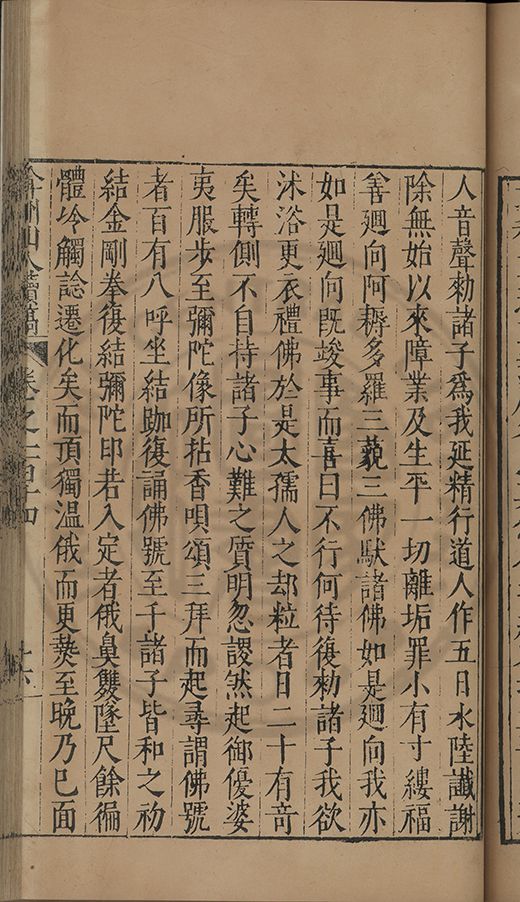 人音聲勑諸子為我延精行道人作五日水陸讖謝
除無始以來障業及生平一切離垢罪小有寸縷福
善廻向阿耨多羅三藐三佛䭾諸佛如是廻向我亦
如是廻向既竣事而喜曰不行何待復勑諸子我欲
沐浴更衣禮佛於是太孺人之却粒者日二十有竒
矣轉側不自持諸子心難之質明忽謖然起御優婆
夷服步至彌陀像所拈香唄頌三拜而起尋謂佛號
者百有八呼坐結跏復誦佛號至千諸子皆和之初
結金剛拳復結彌陀印若入定者俄鼻雙墜尺餘徧
體冷觸諗遷化矣而頂獨溫俄而更𤍠至晚乃已面
弇州山人續藁 卷之一百四十四 十六